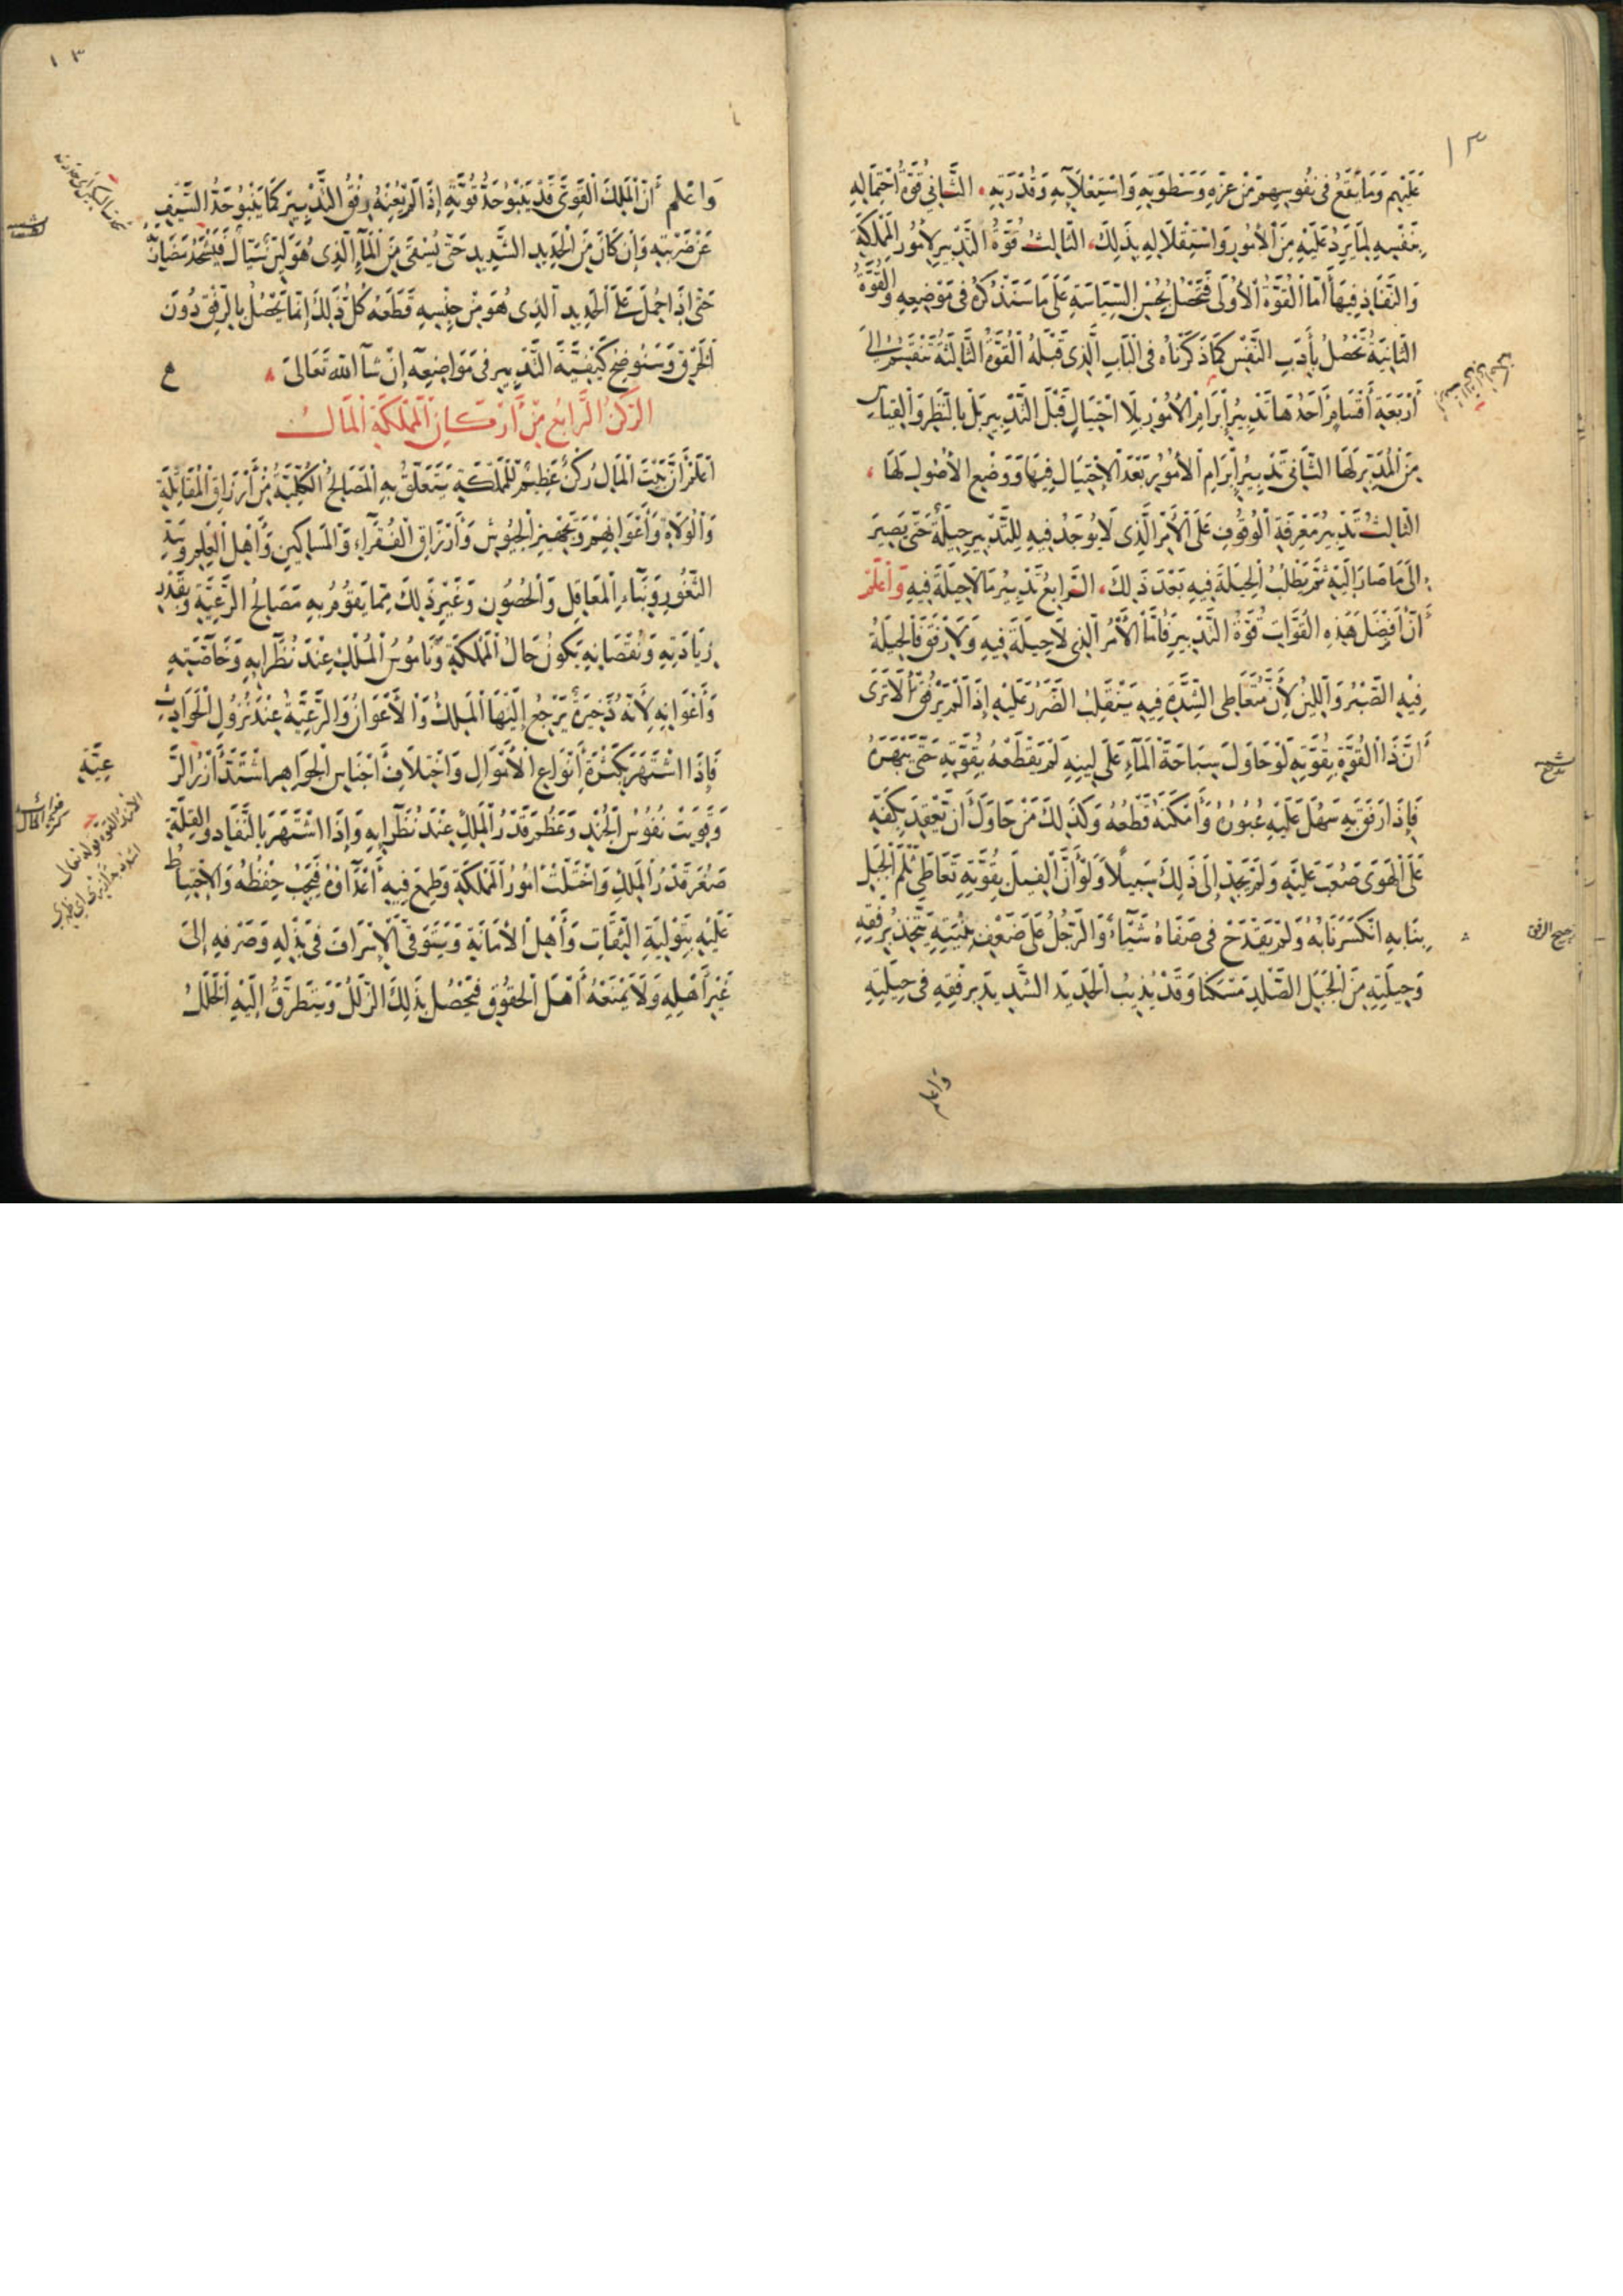 ١٣
عَلَيْهِم وَمَا يَقَعُ فِى نُفُوسِهِمْ مِنْ عِزِّهِ وَسَطْوَتِهِ وَاسْتِعْلَآئِهِ وَقُدْرَتِهِ، الثَّانِى قُوَّةُ احْتِمَالِهِ
بِنَفْسِهِ لِمَا يَرِدُ عَلَيْهِ مِنَ الْأُمُورِ وَاسْتِقْلَالِهِ بِذَلِكَ، الثَّالِثُ قُوَّةُ التَّدْبِيرِ لِأُمُورِ الْمَمْلَكَةِ
وَالنَّفَاذِ فِيهَا أَمَّا الْقُوَّةُ الْأُولَى فَتَحْصُلُ بِحُسْنِ السِّيَاسَةِ عَلَى مَا سَنَذْكُرُهُ فِى مَوْضِعِهِ وَالْقُوَّةُ
الثَّانِيَةُ تَحْصُلُ بِأَدَبِ النَّفْسِ كَمَا ذَكَرْنَاهُ فِى الْبَابِ الَّذِى قَبْلَهُ الْقُوَّةُ الثَّالِثَةُ تَنْقَسِمُ إِلَى
أَرْبَعَةِ أَقْسَامٍ أَحَدُهَا تَدْبِيرُ إِبْرَامِ الْأُمُورِ بِلَا احْتِيَالٍ قَبْلَ التَّدْبِيرِ بَلْ بِالنَّظَرِ وَالْقِيَاسِ
مِنَ الْمُدَبِّرِ لَهَا الثَّانِى تَدْبِيرُ إِبْرَامِ الْأُمُورِ بَعْدَ الْاِحْتِيَالِ فِيهَا وَوَضْعِ الْأُصُولِ لَهَا،
الثَّالِثُ تَدْبِيرُ مَعْرِفَةِ الْوُقُوفِ عَلَى الْأَمْرِ الَّذِى لَا يُوجَدُ فِيهِ لِلتَّدْبِيرِ حِيلَةٌ حَتَّى يَصِيرَ
إِلَى مَا صَارَ إِلَيْهِ ثُمَّ يَطْلُبُ الْحِيلَةَ فِيهِ بَعْدَ ذَلِكَ، الرَّابِعُ تَدْبِيرُ مَا لَا حِيلَةَ فِيهِ وَاعْلَمْ
أَنَّ أَفْضَلَ هَذِهِ الْقُوَّاتِ قُوَّةُ التَّدْبِيرِ فَأَمَّا الْأَمْرُ الَّذِى لَا حِيلَةَ فِيهِ وَلَا رِفْقَ فَالْحِيلَةُ
فِيْهِ الصَّبْرُ وَاللِّينُ لِأَنَّ مُتَعَاطِى الشِّدَّةِ فِيهِ يَنْقَلِبُ الضَّرَرُ عَلَيْهِ إِذَا لَمْ يَرْفُقْ أَلَا تَرَى
أَنَّ ذَا الْقُوَّةِ بِقُوَّتِهِ لَوْ حَاوَلَ سِبَاحَةَ الْمَآءِ عَلَى لِينِهِ لَمْ يَقْطَعْهُ بِقُوَّتِهِ حَتَّى يَبْهَرَهُ
فَإِذَا رَفَقَ بِهِ سَهُلَ عَلَيْهِ عُبُورُهُ وَأَمْكَنَهُ قَطْعُهُ وَكَذَلِكَ مَنْ حَاوَلَ أَنْ يَعْقِدَ بِكَفِّهِ
عَلَى الْهَوَى صَعُبَ عَلَيْهِ وَلَمْ يَجِدْ إِلَى ذَلِكَ سَبِيلًا وَلَوْ أَنَّ الْفِيلَ بِقُوَّتِهِ تَعَاطَى ثَلْمَ الْجَبَلِ
بِنَابِهِ انْكَسَرَ نَابُهُ وَلَمْ يَقْدَحْ فِى صَفَاهُ شَيْئًا وَالرَّجُلُ عَلَى ضَعْفِ بُنْيَتِهِ يَتَّخِذُ بِرِفْقِهِ
وَحِيلَتِهِ مِنَ الْجَبَلِ الصَّلْدِ مَسْكَنًا وَقَدْ يُذِيبُ الْحَدِيدَ الشَّدِيدَ بِرِفْقِهِ فِى حِيلَتِهِ
وَاعلم
١٣
وَاعْلم أَنَّ الْمَلِكَ الْقَوِىَّ قَدْ يَنْبُو حَدُّ قُوَّتِهِ إِذَا لَمْ يُعِنْهُ رِفْقُ التَّدْبِيرِ كَمَا يَنْبُو حَدُّ السَّيْفِ
عَنْ ضَرْبَتِهِ وَإِنْ كَانَ مِنَ الْحَدِيدِ الشَّدِيدِ حَتَّى يُسْقَى مِنَ الْمَآءِ الَّذِى هُوَ لَيِّنٌ سَيَّالٌ فَيُشْحَذُ مَضَاؤُهُ
حَتَّى إِذَا حُمِلَ عَلَى الْحَدِيدِ الَّذِى هُوَ مِنْ جِنْسِهِ قَطَعَهُ كُلُّ ذَلِكَ إِنَّمَا يَحْصُلُ بِالرِّفْقِ دُونَ
الْخَرْقِ وَسَنُوضِحُ كَيْفِيَّةَ التَّدْبِيرِ فِى مَوَاضِعِهِ إِنْ شَآ اللهُ تَعَالَى،
الرُّكْنُ الرَّابِعُ مِنْ أَرْكَانِ الْمَمْلَكَةِ الْمَالُ
اعْلَمْ أَنَّ بَيْتَ الْمَالِ رُكْنٌ عَظِيمٌ لِلْمَمْلَكَةِ يَتَعَلَّقُ بِهِ الْمَصَالِحُ الْكُلِّيَّةُ مِنْ أَرْزَاقِ الْمُقَاتِلَةِ
وَالْوُلَاةِ وَأَعْوَانِهِمْ وَتَجْهِيزِ الْجُيُوشِ وَأَرْزَاقِ الْفُقَرَاءِ وَالْمَسَاكِينِ وَأَهْلِ الْعِلْمِ وَسَدِّ
الثُّغُورِ وَبِنَاءِ الْمَعَاقِلِ وَالْحُصُونِ وَغَيْرِ ذَلِكَ مِمَّا يَقُومُ بِهِ مَصَالِحُ الرَّعِيَّةِ وَبِقَدْرِ
زِيَادَتِهِ وَنُقْصَانِهِ يَكُونُ حَالُ الْمَمْلَكَةِ وَنَامُوسُ الْمُلْكِ عِنْدَ نُظَرَآئِهِ وَخَاصَّتِهِ
وَأَعْوَانِهِ لِأَنَّهُ ذَخِيرَةٌ يَرْجِعُ إِلَيْهَا الْمَلِكُ وَالْأَعْوَانُ وَالرَّعِيَّةُ عِنْدَ نُزُولِ الْحَوَادِثِ
فَإِذَا اشْتَهَرَ بِكَثْرَةِ أَنْوَاعِ الْأَمْوَالِ وَاخْتِلَافِ أَجْنَاسِ الْجَوَاهِرِ اشْتَدَّ أَزْرُ الرَّ
عِيَّةِ
وَقَوِيَتْ نُفُوسُ الْجُنْدِ وَعَظُمَ قَدْرُ الْمَلِكِ عِنْدَ نُظَرَآئِهِ وَإِذَا اشْتَهَرَ بِالنَّفَادِ وَالْقِلَّةِ
صَغُرَ قَدْرُ الْمَلِكِ وَاخْتَلَّتْ أُمُورُ الْمَمْلَكَةِ وَطَمِعَ فِيهِ أَعْدَاؤُهُ فَيَجِبُ حِفْظُهُ وَالْاِحْتِيَاطُ
عَلَيْهِ بِتَوْلِيَةِ الثِّقَاتِ وَأَهْلِ الْأَمَانَةِ وَيَتَوَقَّى الْإِسْرَافَ فِى بَذْلِهِ وَصَرْفِهِ إِلَى
غَيْرِ أَهْلِهِ وَلَا يَمْنَعُهُ أَهْلَ الْحُقُوقِ فَيَحْصُلُ بِذَلِكَ الزَّلَلُ وَيَتَطَرَّقُ إِلَيْهِ الْخَلَلُ